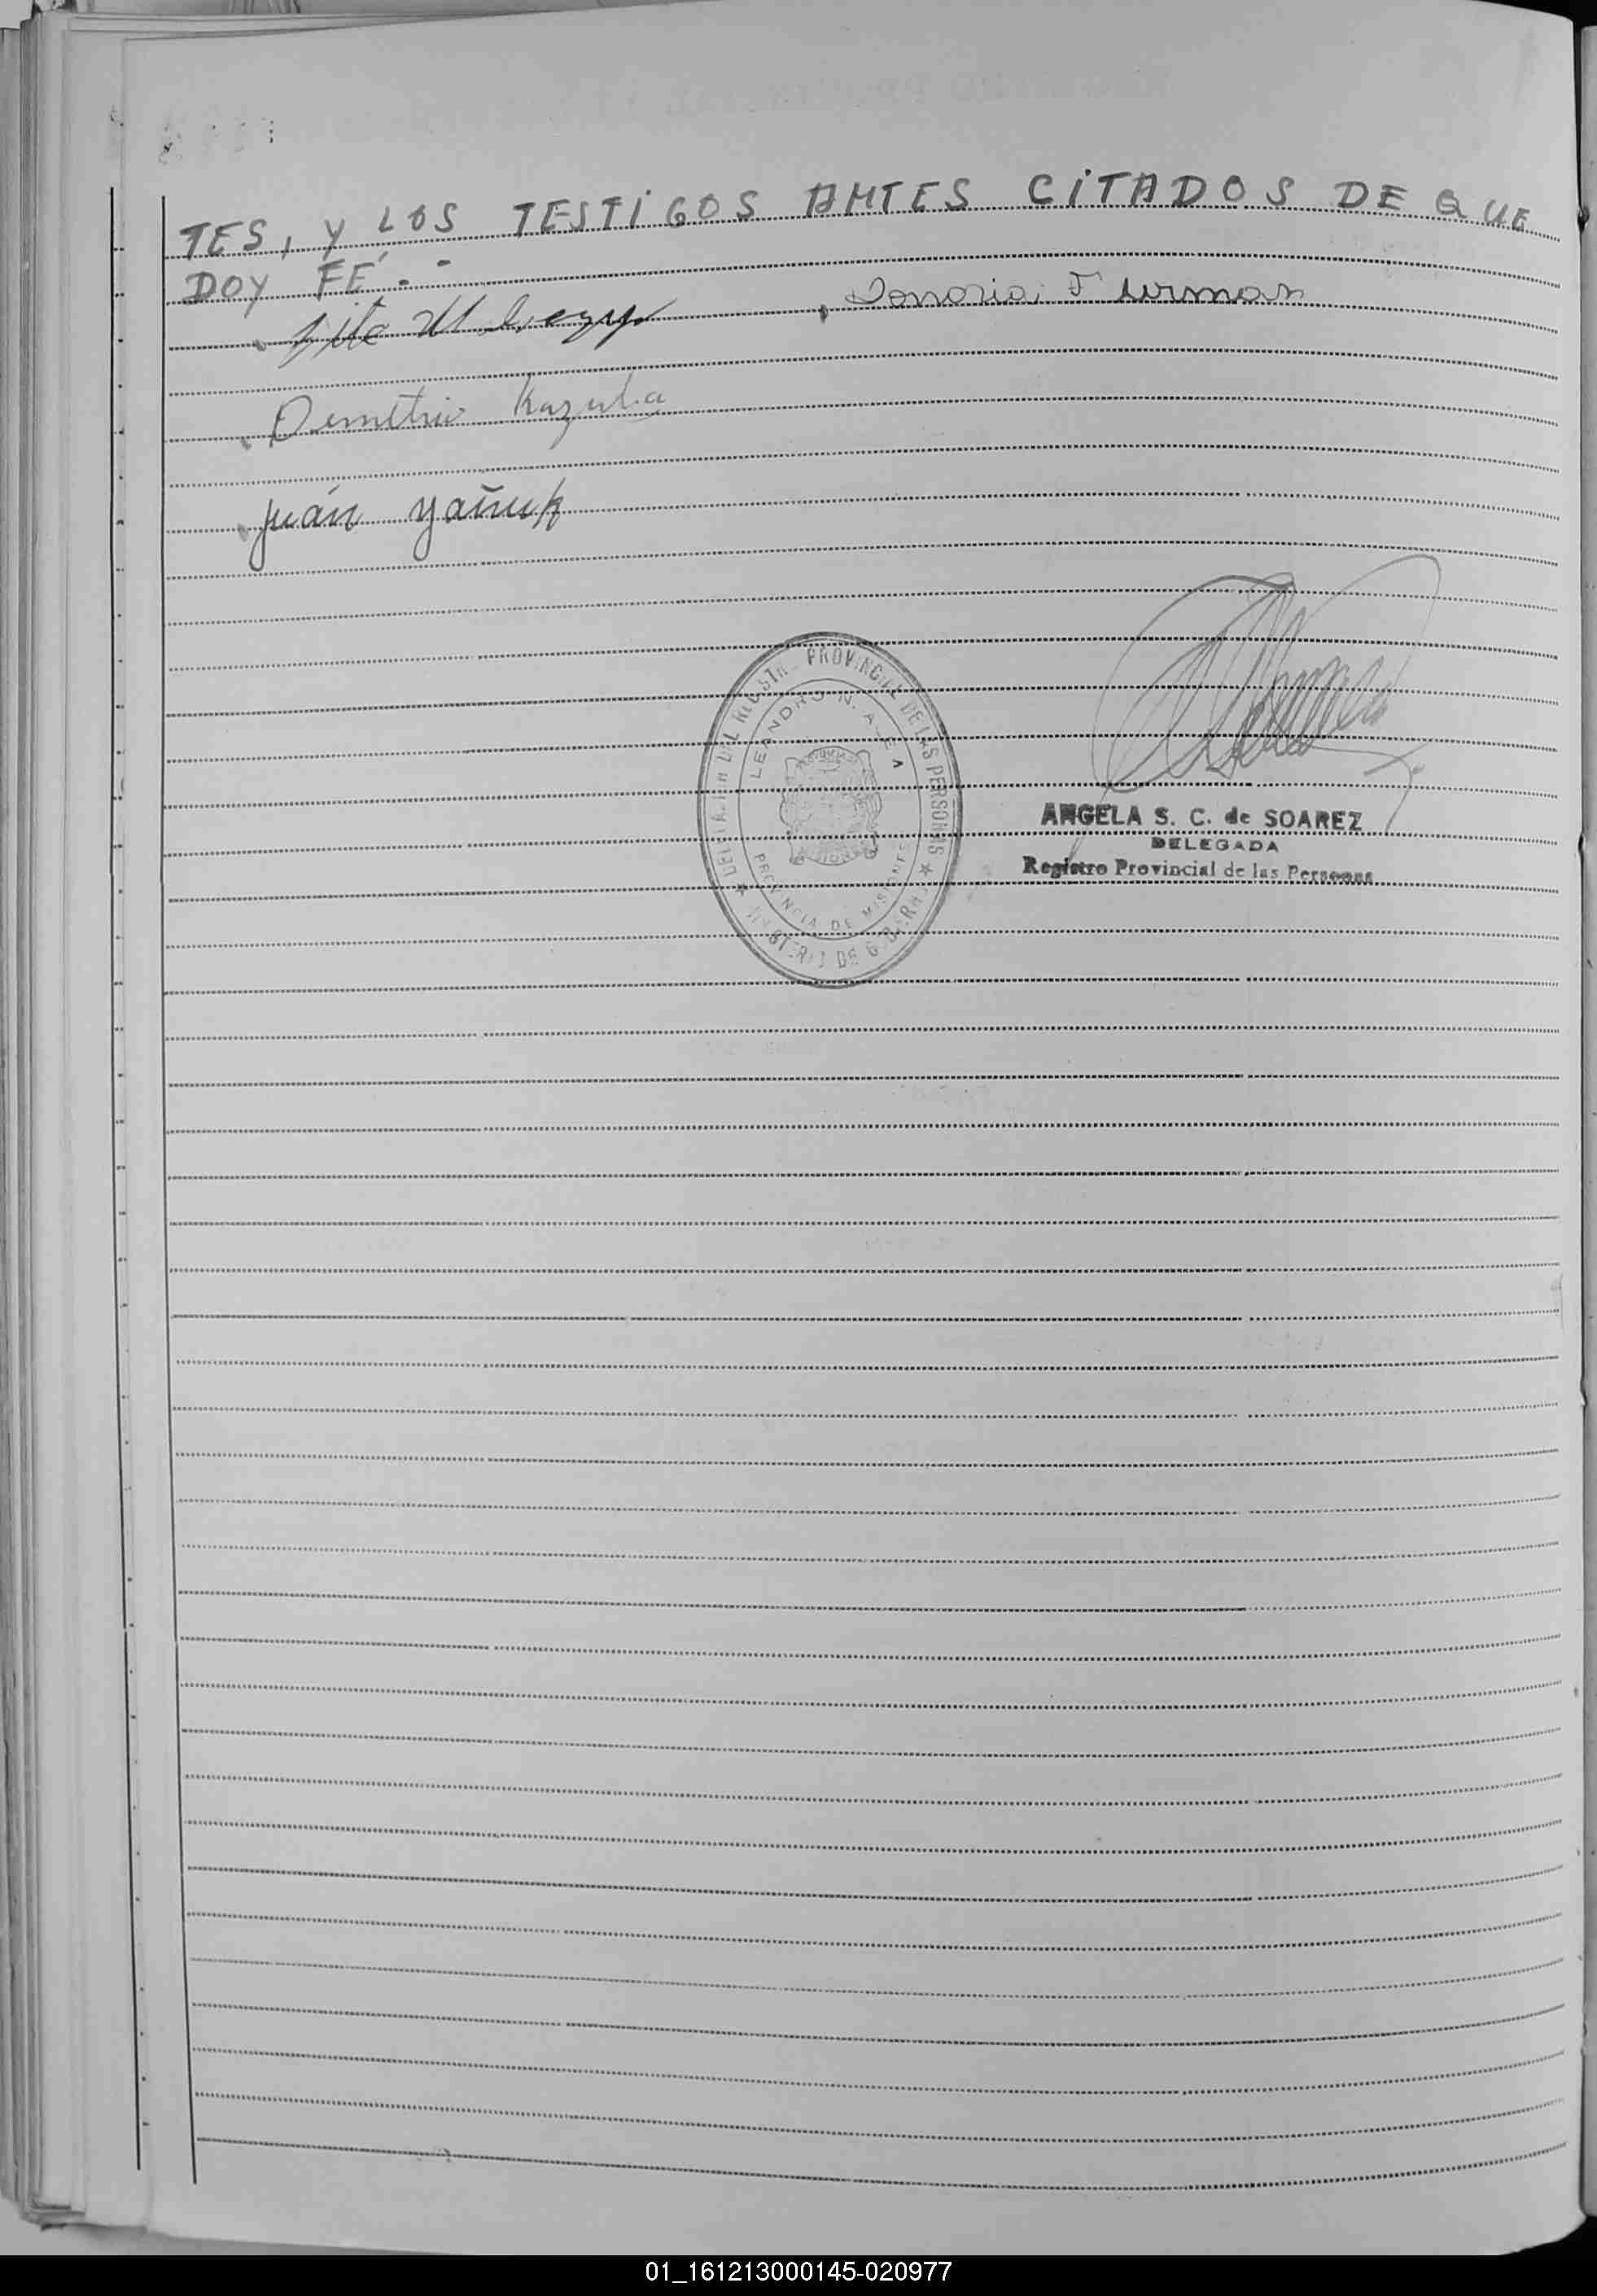 TES, Y LOS TESTIGOS ANTES CITADOS DE QUE
DOY FÉ.-
Demetrio Kazuba
Juán Yañuk
DELEGACION DEL REGISTRO PROVINCIAL DE LAS PERSONAS
LEANDRO N. ALEM
MISIONES
PROVINCIA DE MISIONES
MINISTERIO DE GOBIERNO
ANGELA S. C. de SOAREZ
DELEGADA
Registro Provincial de las Personas
01_161213000145-020977